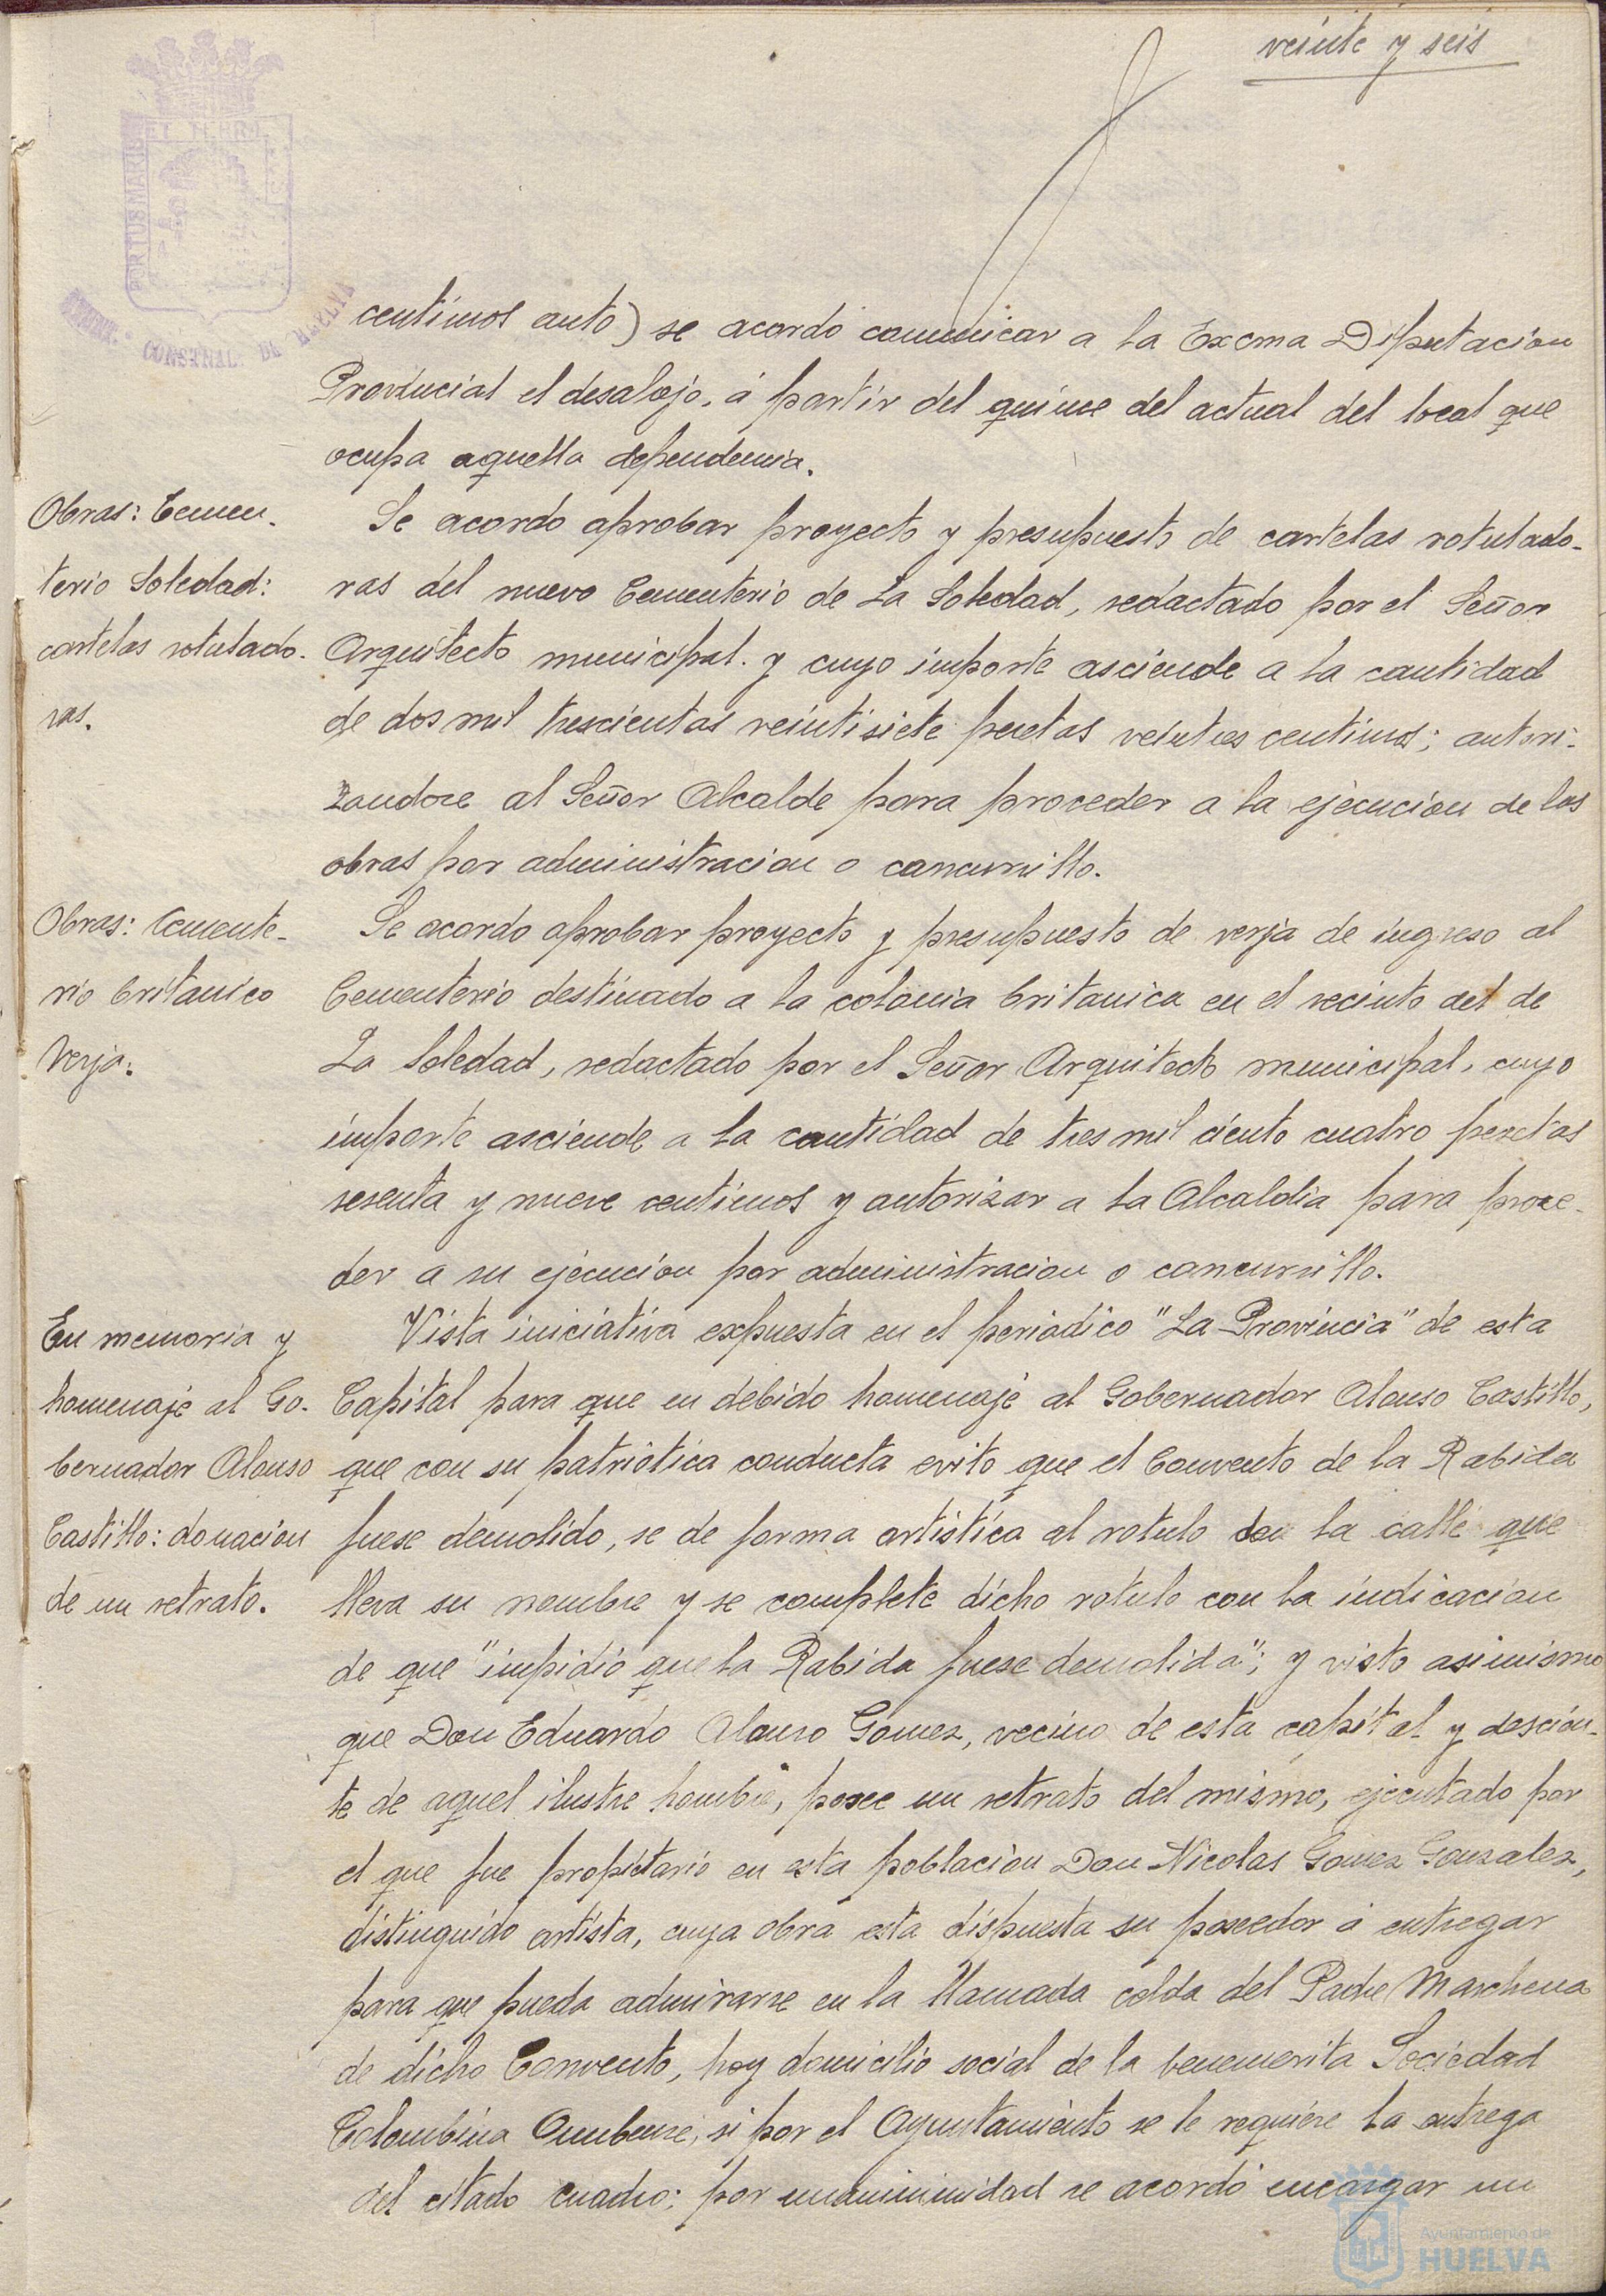 veinte y seis
PORTUS MARIS ET TERRAE
CONSTNAL. DE HUELVA
centimos anto) se acordo comunicar a la Excma Diputacion
Provincial el desalojo, á partir del quince del actual del local que
ocupa aquella dependencia.
Obras: Cemen-
terio Soledad:
cartelas rotulado-
ras.
Se acordo aprobar proyecto y presupuesto de cartelas rotulado-
ras del nuevo Cementerio de La Soledad, redactado por el Señor
Arquitecto municipal. y cuyo importe asciende a la cantidad
de dos mil trescientas veintisiete pesetas veintres centimos; autori-
zandose al Señor Alcalde para proceder a la ejecucion de las
obras por administracion o concursillo.
Obras: Cemente-
rio britanico
Verja.
Se acordo aprobar proyecto y presupuesto de verja de ingreso al
Cementerio destinado a la colonia britanica en el recinto del de
La Soledad, redactado por el Señor Arquitecto municipal, cuyo
importe asciende a la cantidad de tres mil ciento cuatro pesetas
sesenta y nueve centimos y autorizar a la Alcaldia para proce-
der a su ejecucion por administracion o concursillo.
En memoria y
homenaje al Go-
bernador Alonso
Castillo: donacion
de un retrato.
Vista iniciativa expuesta en el periodico "La Provincia" de esta
Capital para que en debido homenaje al Gobernador Alonso Castillo,
que con su patriotica conducta evito que el Convento de la Rabida
fuese demolido, se de forma artistica al rotulo de la calle que
lleva su nombre y se complete dicho rotulo con la indicacion
de que "impidio que la Rabida fuese demolida"; y visto asimismo
que Don Eduardo Alonso Gomez, vecino de esta capital y descien-
te de aquel ilustre hombre, posee un retrato del mismo, ejecutado por
el que fue propietario en esta poblacion Don Nicolas Gomez Gonzalez,
distinguido artista, cuya obra esta dispuesta su poseedor á entregar
para que pueda admirarse en la llamada celda del Padre Marchena
de dicho Convento, hoy domicilio social de la benemerita Sociedad
Colombina Onubense, si por el Ayuntamiento se le requiere la entrega
del citado cuadro; por unanimidad se acordó encargar un
Ayuntamiento de
HUELVA